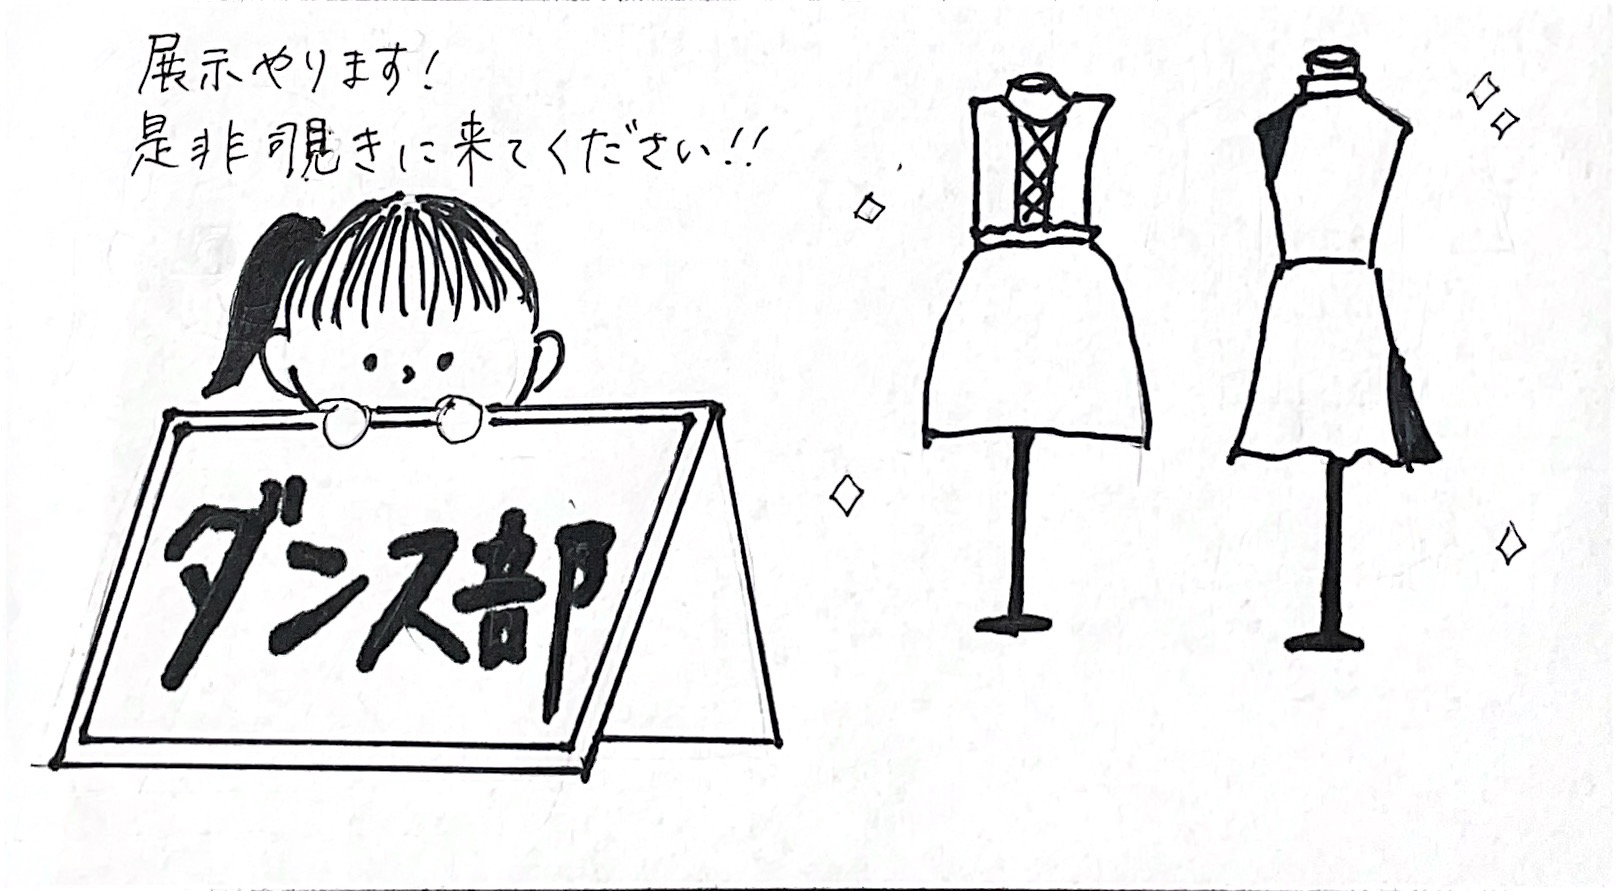 展示やります!
是非覗きに来てください!!
ダンス部